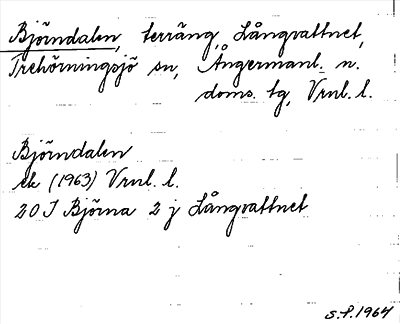 Björndalen, terräng, Långvattnet,
Trehörningsjö sn, Ångermanl. n.
doms. tg, Vrnl. l.
Björndalen
ek (1963) Vrnl. l.
20 I Björna 2 j Långvattnet
S.P. 1964